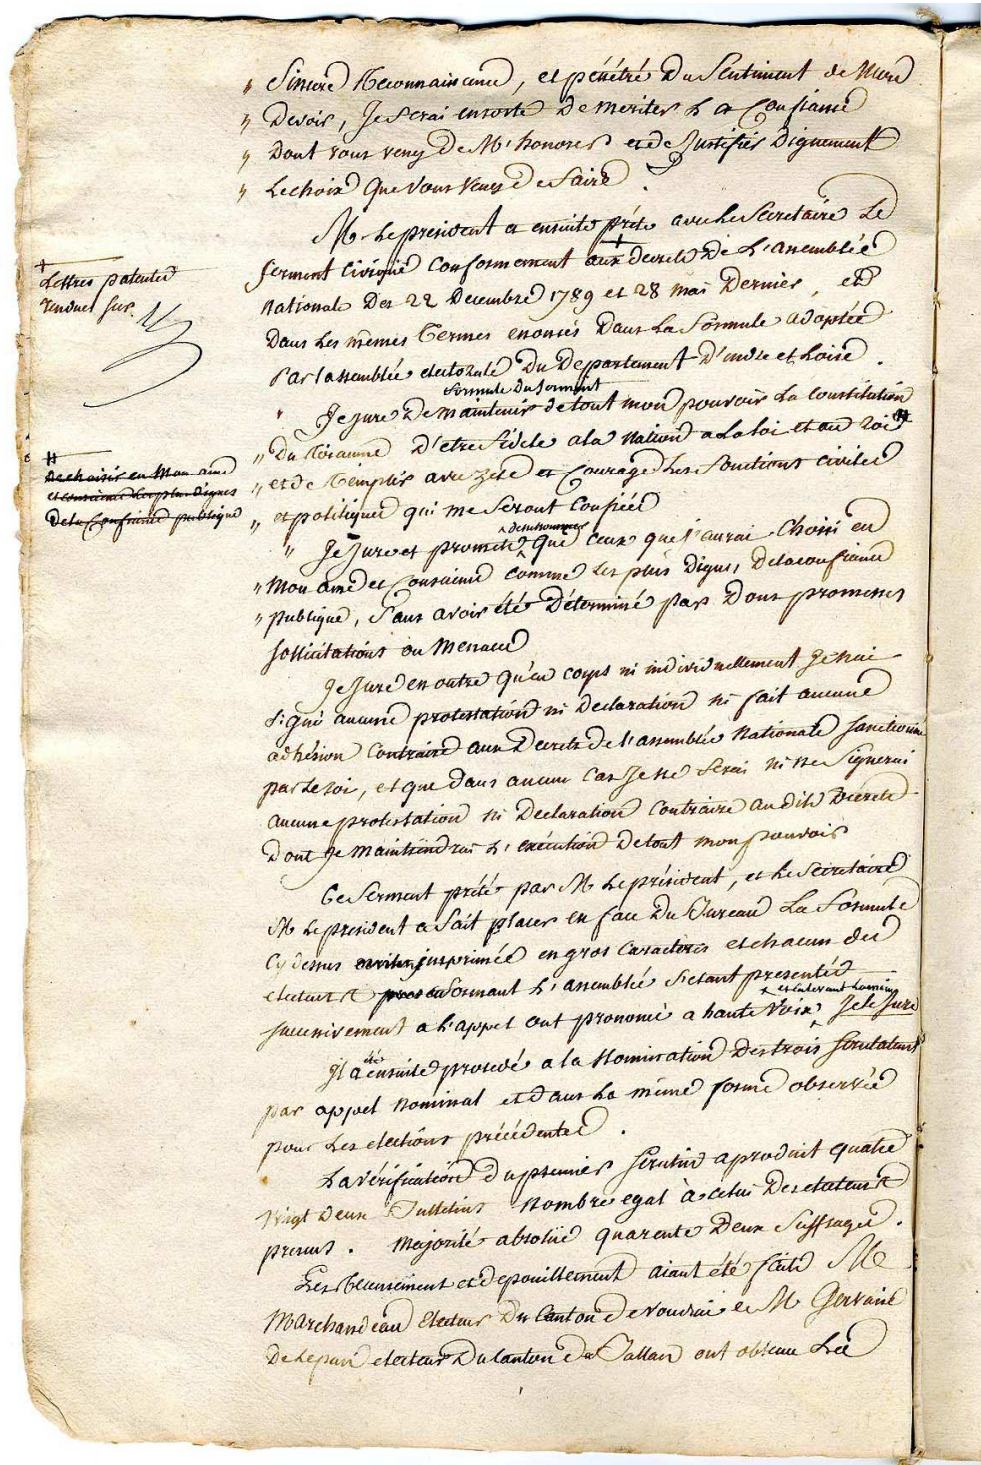 " Sincere Reconnaissance, et pénétré Du Sentiment de Mon
" Devoir, Je Serai ensorte De meriter La Confiance
" Dont vous venez De M'honorer et de Justifier Dignement
" Le choix Que Vous Venez De faire.
M. Le président a ensuite prété avec Le Secretaire Le
Serment Civique Conformement aux decrets De L'assemblée
+
Lettres patentes
rendues sur
Nationale Des 22 Decembre 1789 et 28 mai Dernier, et
Dans Les mêmes Termes enoncés Dans La formule adoptée
Par l'assemblée electorale Du Departement D'indre et Loire.
formule Du Serment
" Je jure De maintenir de tout mon pouvoir La Constitution
" Du Roiaume D'etre fidele a la Nation a La Loi et au Roi #
#
De choisir en Mon ame
et conscience Les plus Dignes
De la Confiance publique
" et de Remplir avec Zele et Courage Les fonctions civiles
" et politiques qui me Seront Confiées
" Je Jure et promets De ne nommer Que Ceux que J'aurai Choisi en
" Mon ame et Conscience Comme Les plus Dignes De la confiance
" publique, Sans avoir été Déterminé par Dons promesses
Sollicitations ou Menaces
Je Jure en outre Qu'en corps ni individuellement Je n'ai
Signé aucune protestation ni Declaration ni fait aucune
adhésion Contraire aux Decrets de l'assemblée Nationale Sanctionnés
par Le roi, et que Dans aucun Cas Je ne ferai ni ne Signerai
aucune protestation ni Declaration Contraire au dits Décrets
Dont Je Maintiendrai L'exécution De tout mon pouvoir
Ce Serment prété par M Le président, et Le Secretaire
M Le president a fait placer en face Du Bureau La formule
Cy dessus imprimée en gros Caracteres et chacun des
electeurs formant L'assemblée S'etant presentés
Successivement a l'appel ont prononcé a haute Voix et en levant La main Je le Jure
Il a été ensuite procédé a la Nomination Des trois Scrutateurs
par appel Nominal et dans La même forme observée
pour Les elections précédentes.
La vérification Du premier Scrutin a produit quatre
Vingt Deux Bulletins Nombre egal à celui Des electeurs
presens. Majorité absolue quarente Deux Suffrages.
Les Recensement et dépouillement aiant été faits M
Marchandeau Electeur Du Canton de Vouvrai et M Gervaise
De Lepan electeur Du Canton de Ballan ont obtenu Les